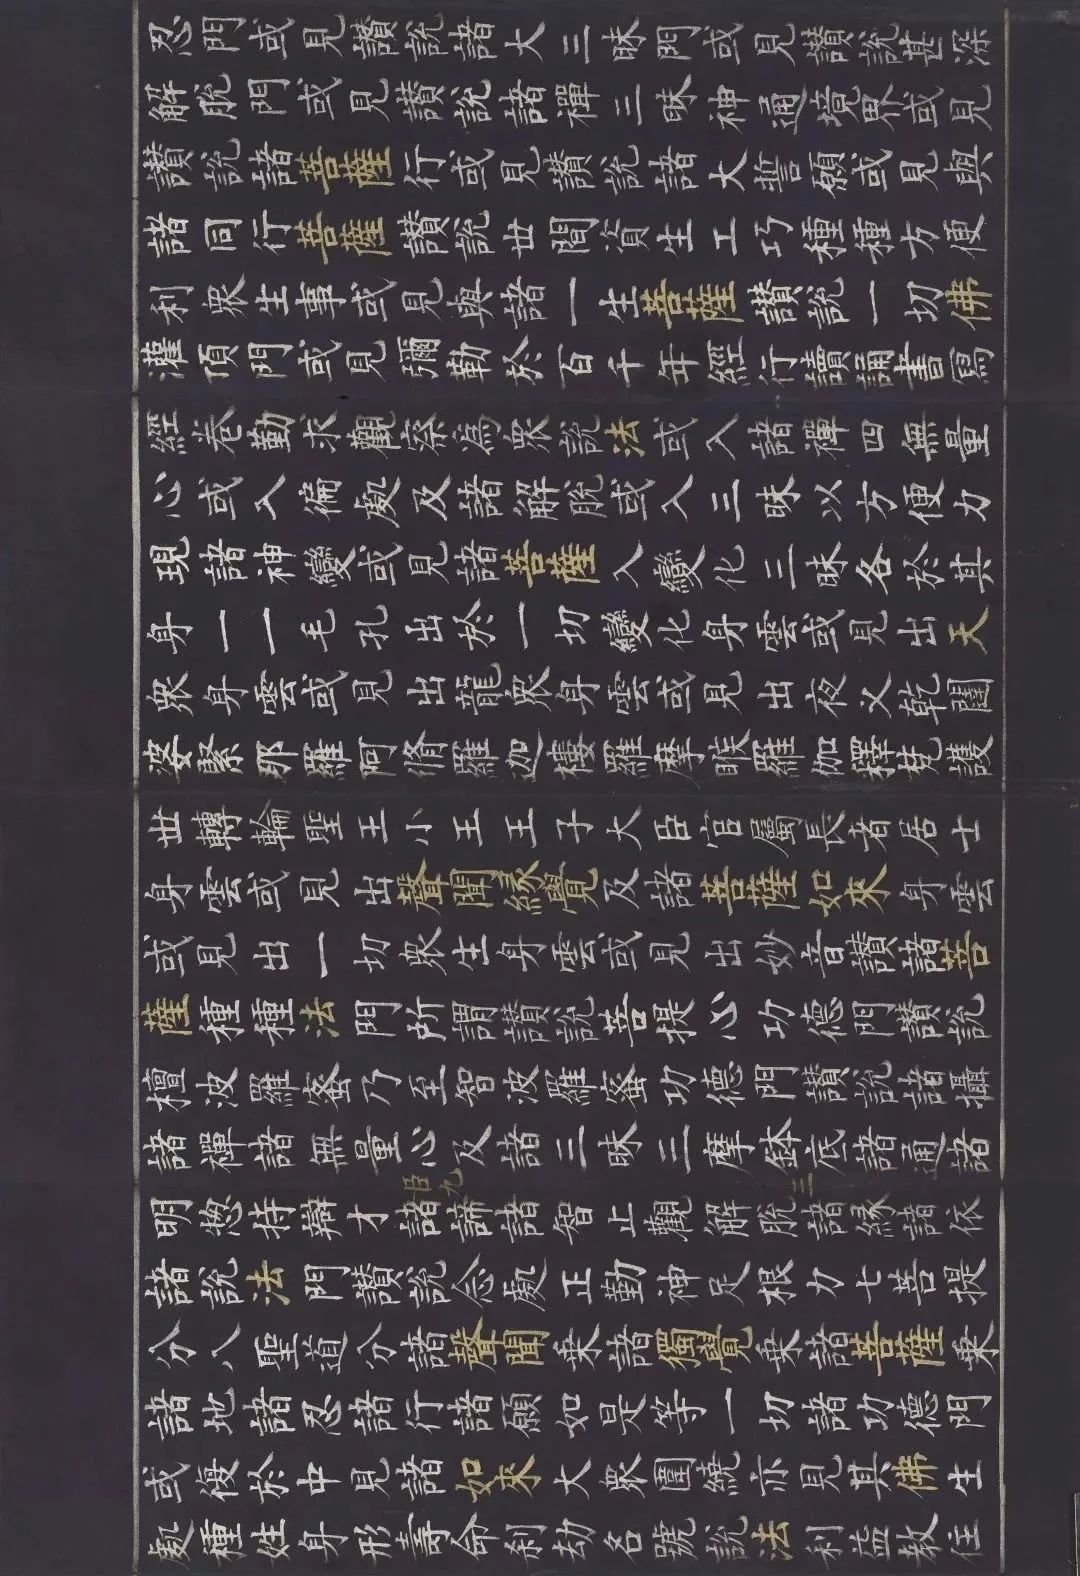 忍門或見讚說諸大三昧門或見讚說甚深
解脫門或見讚說諸禪三昧神通境界或見
讚說諸菩薩行或見讚說諸大誓願或見與
諸同行菩薩讚說世間資生工巧種種方便
利眾生事或見與諸一生菩薩讚說一切佛
灌頂門或見彌勒於百千年經行讀誦書寫
經卷勤求觀察為眾說法或入諸禪四無量
心或入徧處及諸解脫或入三昧以方便力
現諸神變或見諸菩薩入變化三昧各於其
身一一毛孔出於一切變化身雲或見出天
眾身雲或見出龍眾身雲或見出夜叉乾闥
婆緊那羅阿脩羅迦樓羅摩睺羅伽釋梵護
世轉輪聖王小王王子大臣官屬長者居士
身雲或見出聲聞緣覺及諸菩薩如來身雲
或見出一切眾生身雲或見出妙音讚諸菩
薩種種法門所謂讚說菩提心功德門讚說
檀波羅蜜乃至智波羅蜜功德門讚說諸攝
諸禪諸無量心及諸三昧三摩鉢底諸通諸
明總持辯才諸諦諸智止觀解脫諸緣諸依
諸說法門讚說念處正勤神足根力七菩提
分八聖道分諸聲聞乘諸獨覺乘諸菩薩乘
諸地諸忍諸行諸願如是等一切諸功德門
或復於中見諸如來大眾圍繞亦見其佛生
處種姓身形壽命剎劫名號說法利益教住